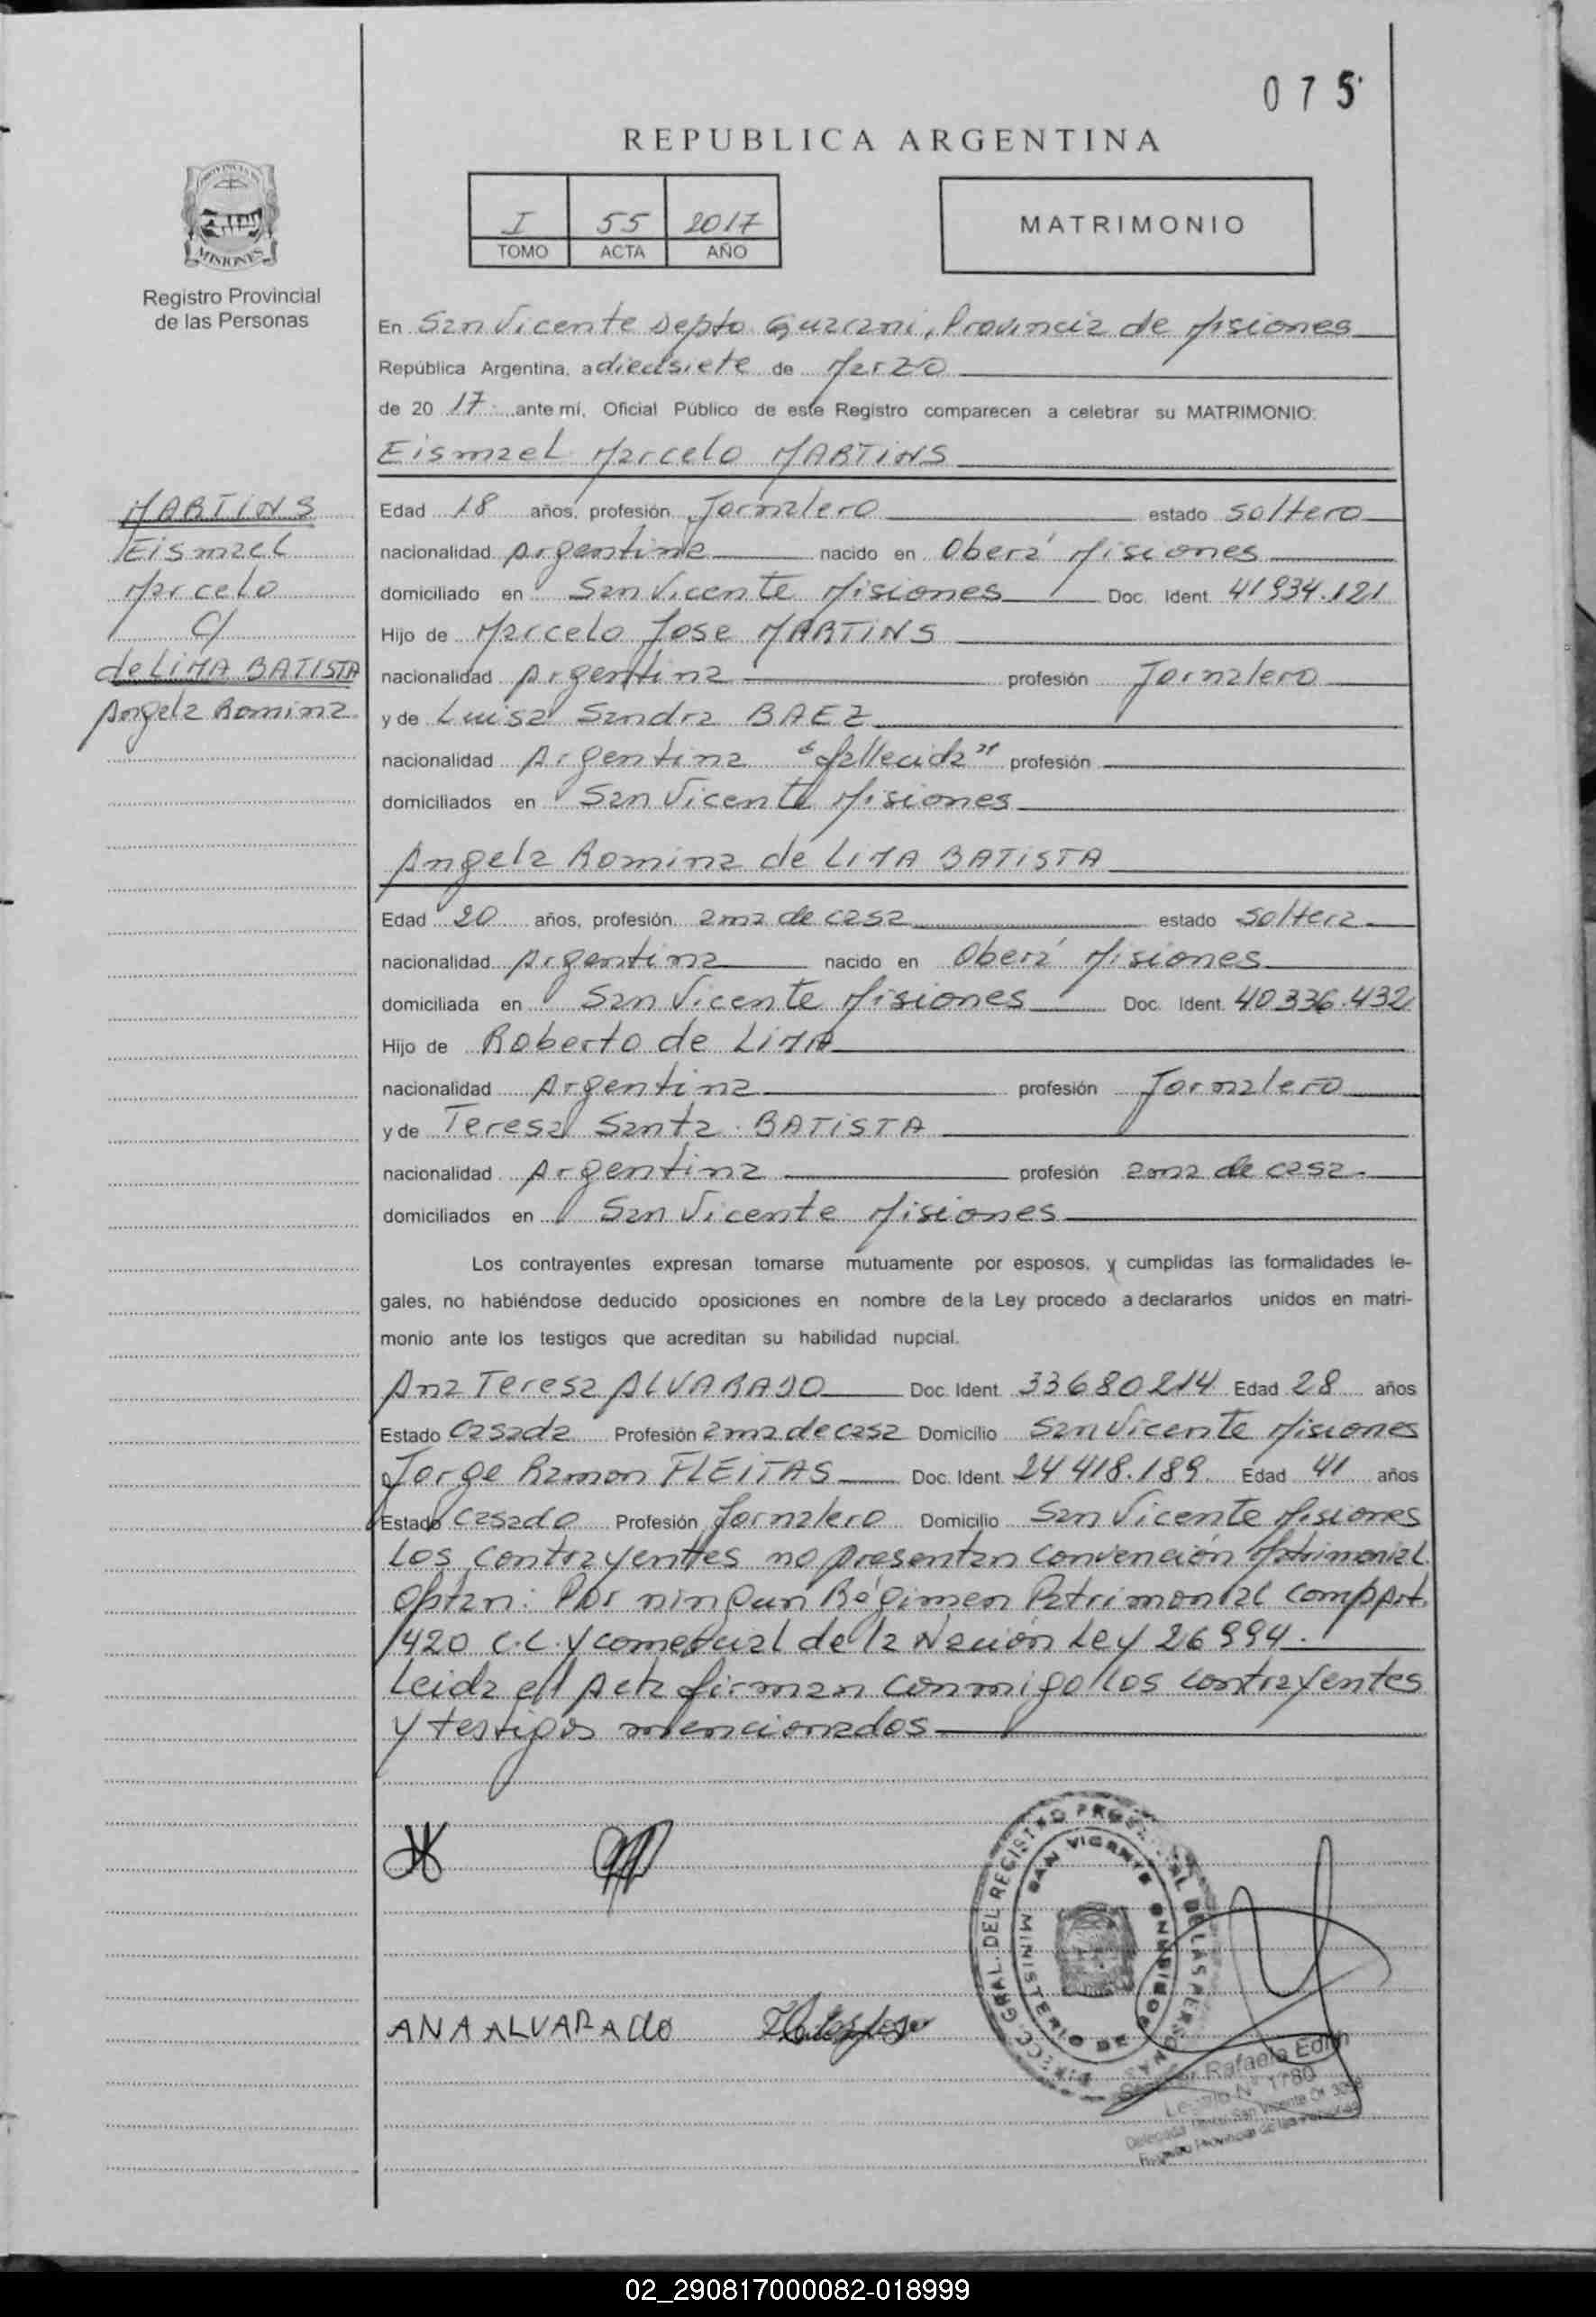 075
REPUBLICA ARGENTINA
I 55 2017
TOMO ACTA AÑO
MATRIMONIO
MISIONES
Registro Provincial
de las Personas
En San Vicente Depto Guarani, Provincia de Misiones
República Argentina, a diecisiete de Marzo
de 20 17 ante mí, Oficial Público de este Registro comparecen a celebrar su MATRIMONIO:
Eismael Marcelo MARTINS
MARTINS
Eismael
Marcelo
C/
de LIMA BATISTA
Angela Romina
Edad 18 años, profesión Jornalero estado soltero
nacionalidad Argentina nacido en Oberá Misiones
domiciliado en San Vicente Misiones Doc. Ident. 41934.121
Hijo de Marcelo Jose MARTINS
nacionalidad Argentina profesión Jornalero
y de Luisa Sandra BAEZ
nacionalidad Argentina "fallecida" profesión
domiciliados en San Vicente Misiones
Angela Romina de LIMA BATISTA
Edad 20 años, profesión ama de casa estado soltera
nacionalidad Argentina nacido en Oberá Misiones
domiciliada en San Vicente Misiones Doc. Ident. 40336.432
Hijo de Roberto de LIMA
nacionalidad Argentina profesión Jornalero
y de Teresa Santa BATISTA
nacionalidad Argentina profesión ama de casa
domiciliados en San Vicente Misiones
Los contrayentes expresan tomarse mutuamente por esposos, y cumplidas las formalidades le-
gales, no habiéndose deducido oposiciones en nombre de la Ley procedo a declararlos unidos en matri-
monio ante los testigos que acreditan su habilidad nupcial.
Ana Teresa ALVARADO Doc. Ident. 33680214 Edad 28 años
Estado Casada Profesión ama de casa Domicilio San Vicente Misiones
Jorge Ramon FLEITAS Doc. Ident. 24418.189 Edad 41 años
Estado Casado Profesión Jornalero Domicilio San Vicente Misiones
Los contrayentes no presentan convención Matrimonial
Optan: Por ningun Régimen Patrimonial comp Art.
1420 C.C. y comercial de la Nación Ley 26994.
Leida el Acta firman conmigo los contrayentes
y testigos mencionados
ANA ALVARADO
SAN VICENTE MISIONES
Rafaela Edith
Legajo N° 1780
02_290817000082-018999